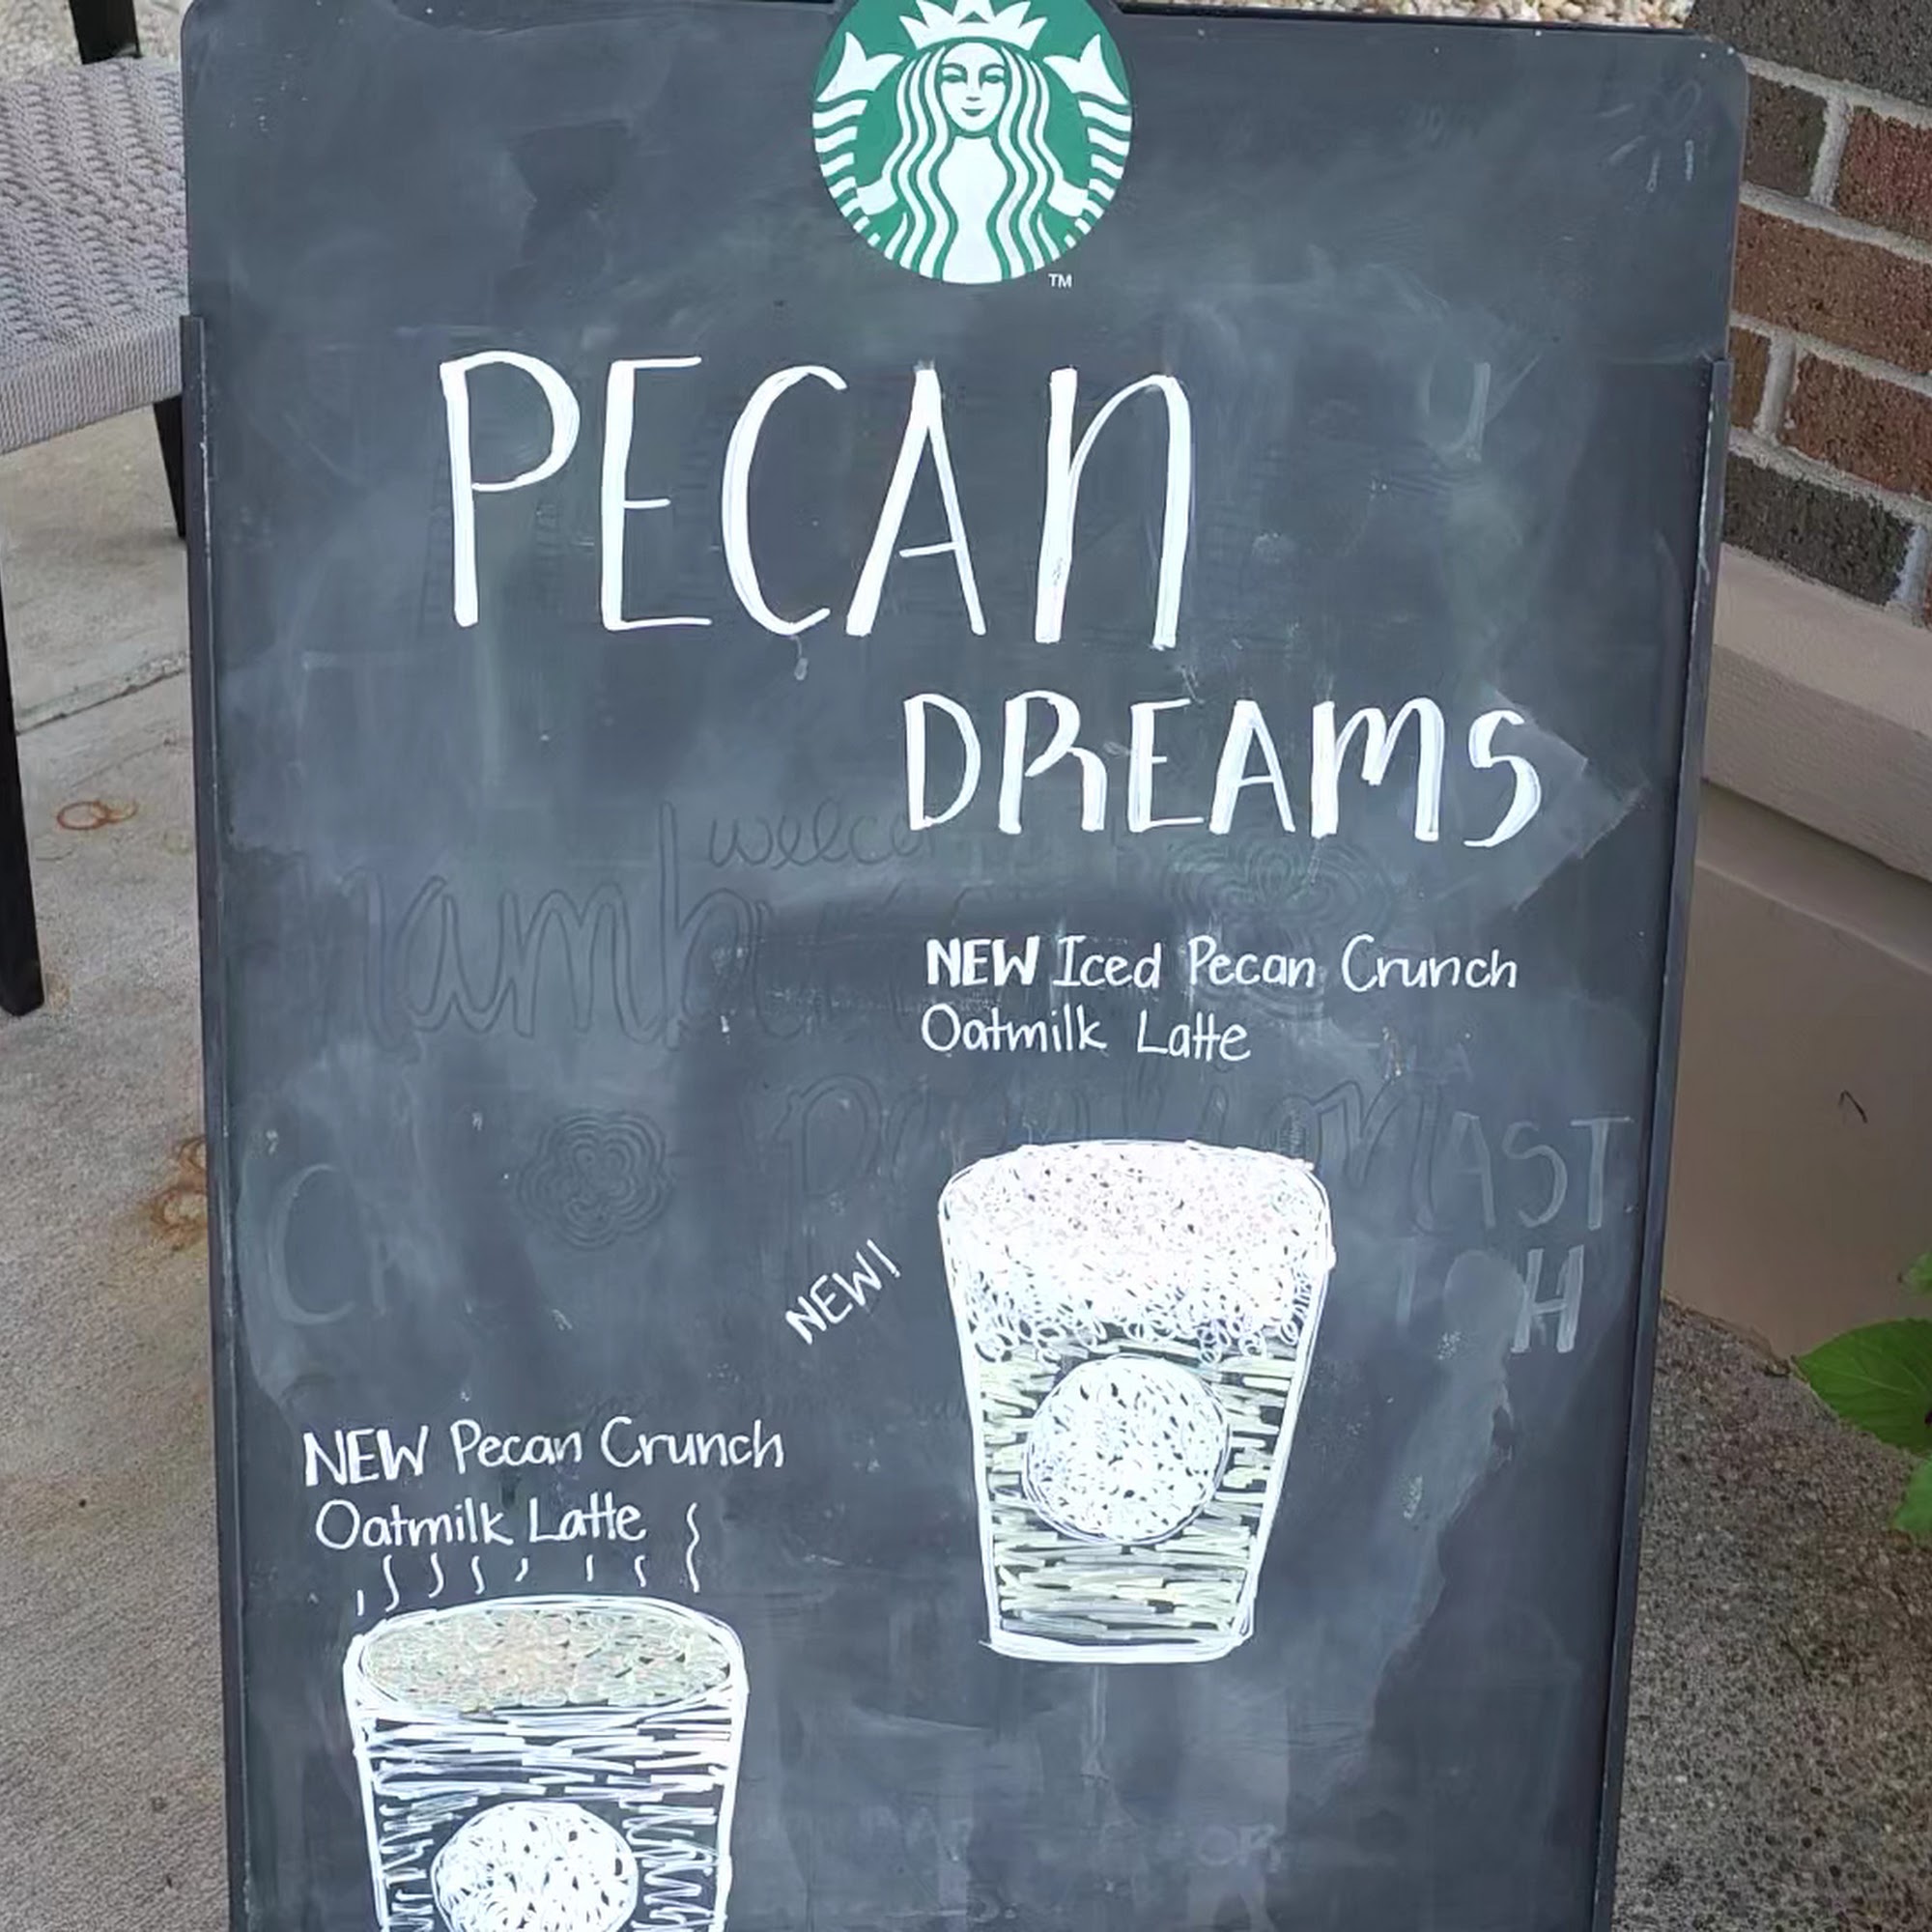 TM
PECAN
DREAMS
welco
NEW Iced Pecan Crunch
Oatmilk Latte
AST
H
NEW!
NEW Pecan Crunch
Oatmilk Latte